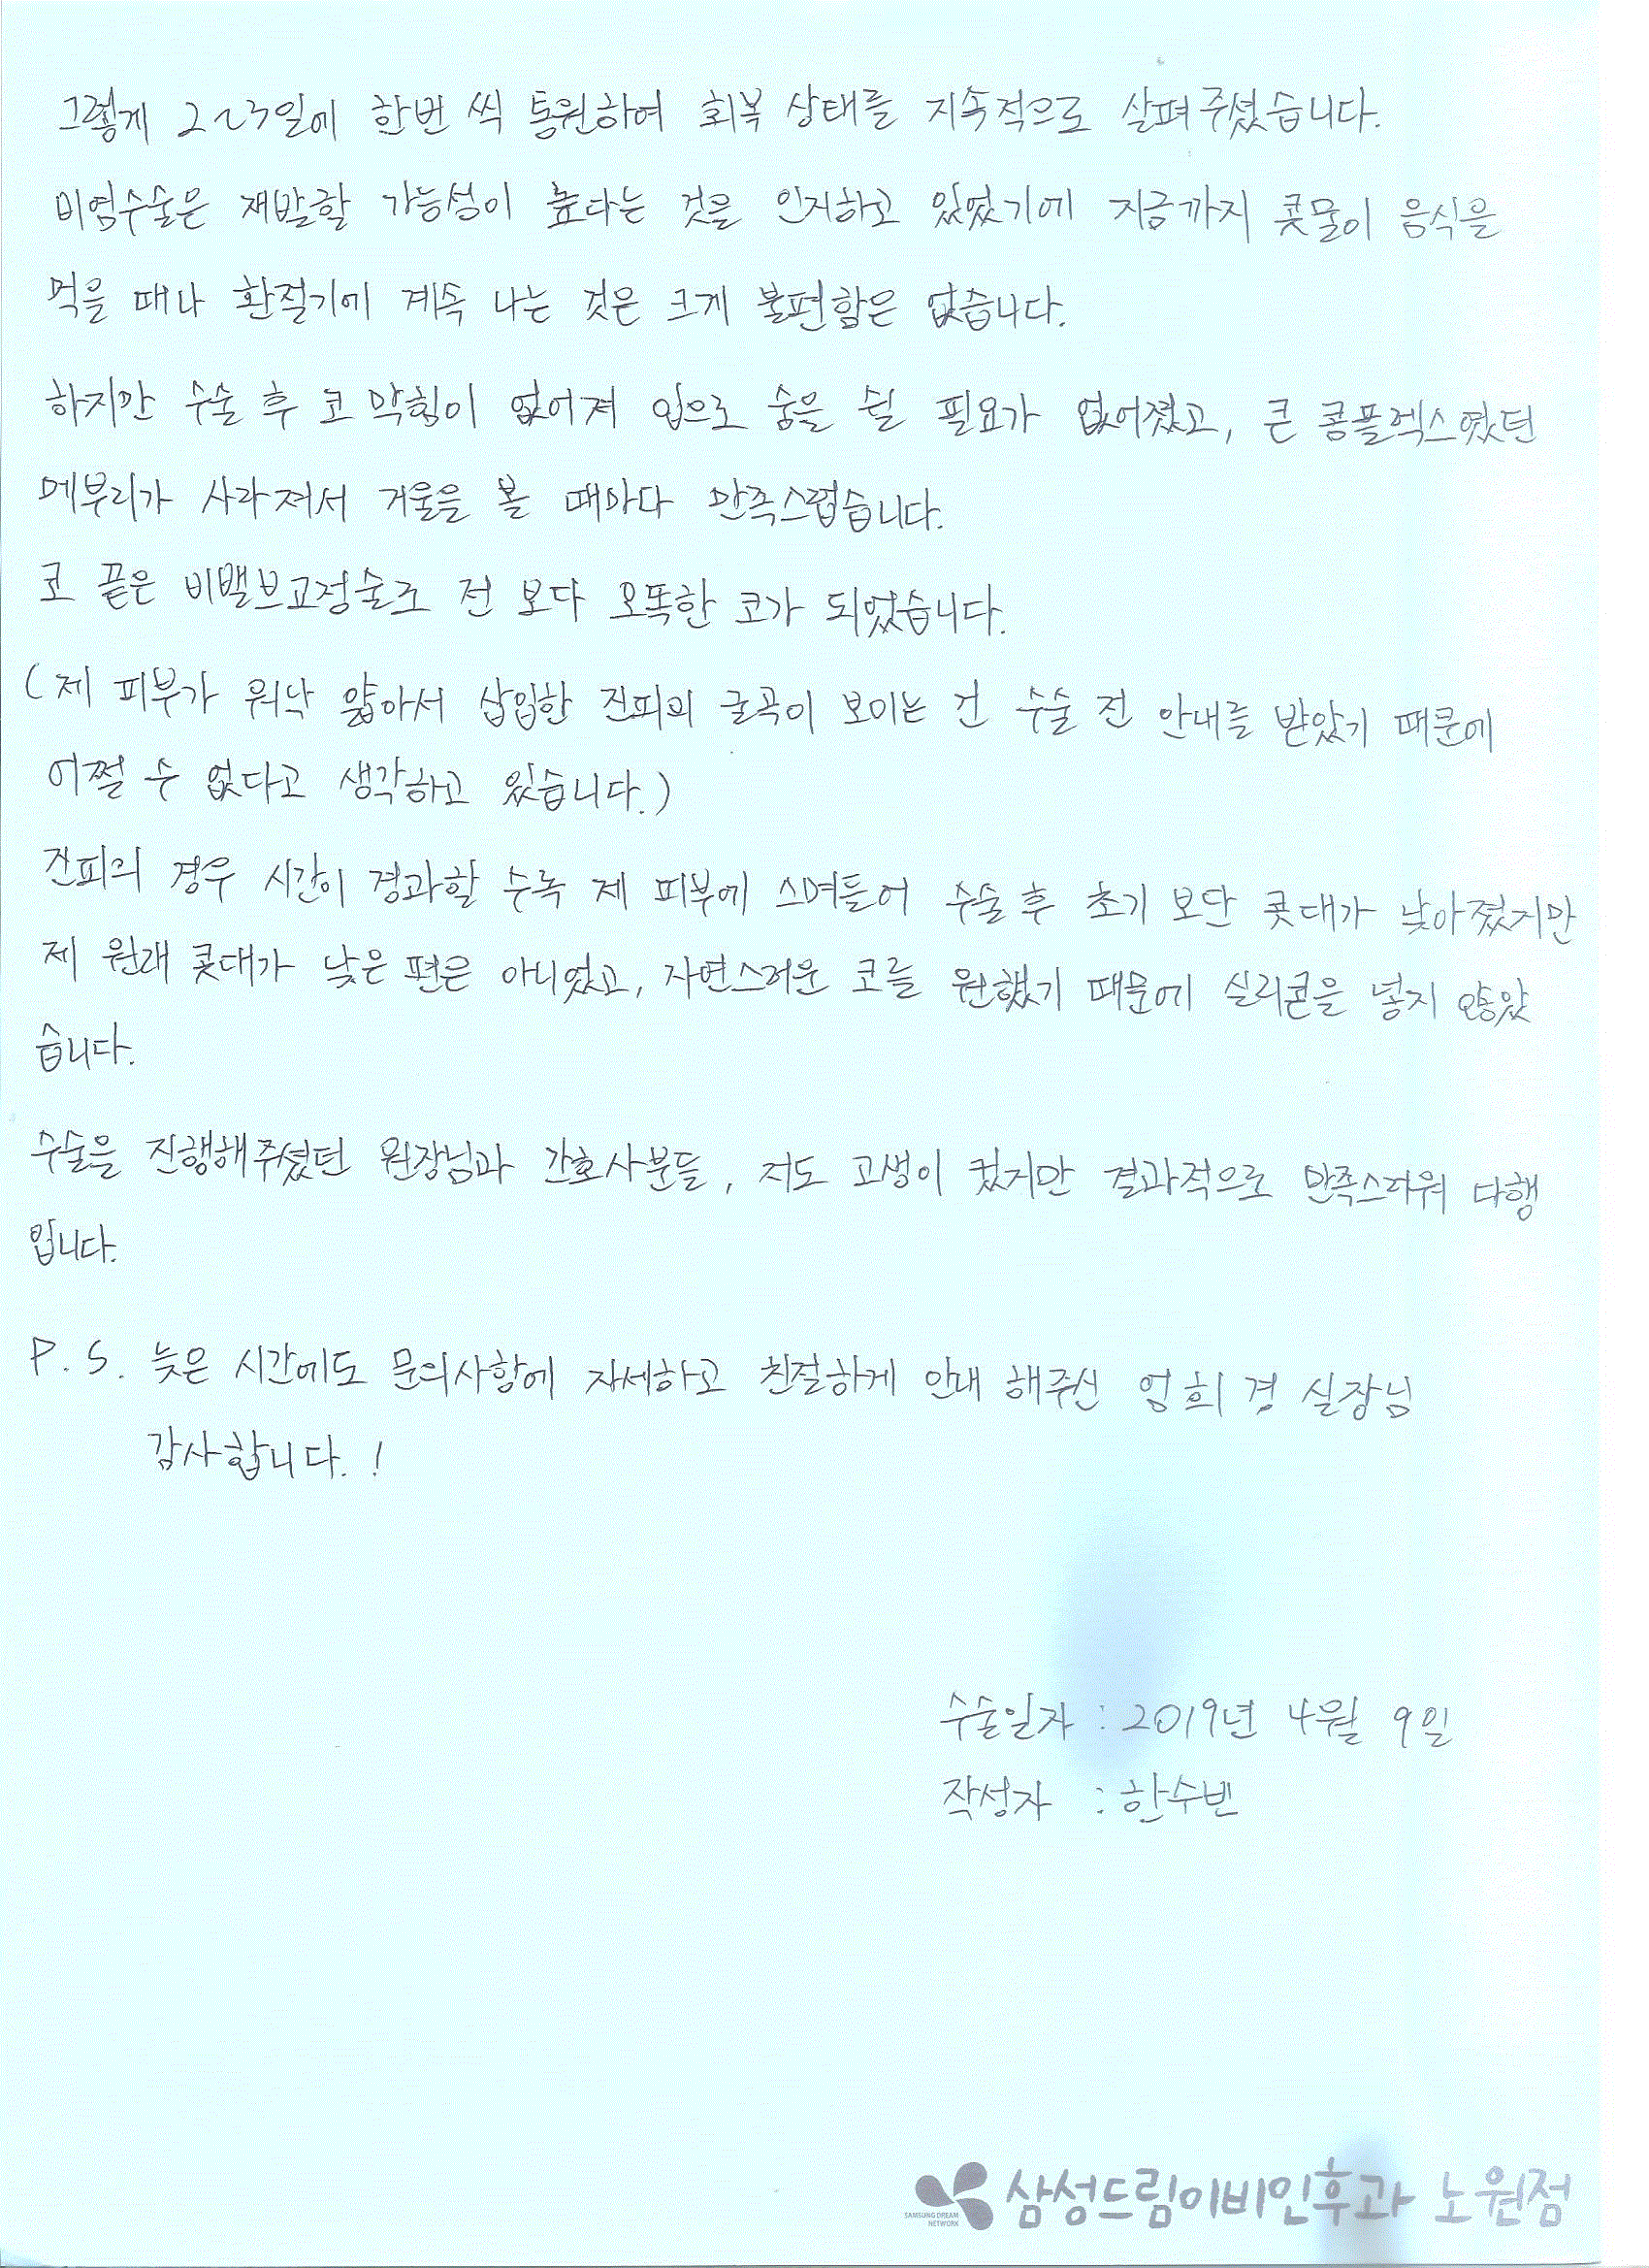 그렇게 2~3일에 한번 씩 통원하여 회복 상태를 지속적으로 살펴주셨습니다.
비염수술은 재발할 가능성이 높다는 것을 인지하고 있었기에 지금까지 콧물이 음식을
먹을 때나 환절기에 계속 나는 것은 크게 불편함은 없습니다.
하지만 수술 후 코 막힘이 없어져 입으로 숨을 쉴 필요가 없어졌고, 큰 콤플렉스였던
메부리가 사라져서 거울을 볼 때마다 만족스럽습니다.
코 끝은 비밸브교정술로 전 보다 오똑한 코가 되었습니다.
(제 피부가 워낙 얇아서 삽입한 진피의 굴곡이 보이는 건 수술 전 안내를 받았기 때문에
어쩔 수 없다고 생각하고 있습니다.)
진피의 경우 시간이 경과할 수록 제 피부에 스며들어 수술 후 초기 보단 콧대가 낮아졌지만
제 원래 콧대가 낮은 편은 아니었고, 자연스러운 코를 원했기 때문에 실리콘을 넣지 않았
습니다.
수술을 진행해주셨던 원장님과 간호사분들, 저도 고생이 컸지만 결과적으로 만족스러워 다행
입니다.
P.S. 늦은 시간에도 문의사항에 자세하고 친절하게 안내 해주신 엄희경 실장님
감사합니다.!
수술일자 : 2019년 4월 9일
작성자 : 한수빈
SAMSUNG DREAM
NETWORK
삼성드림이비인후과 노원점